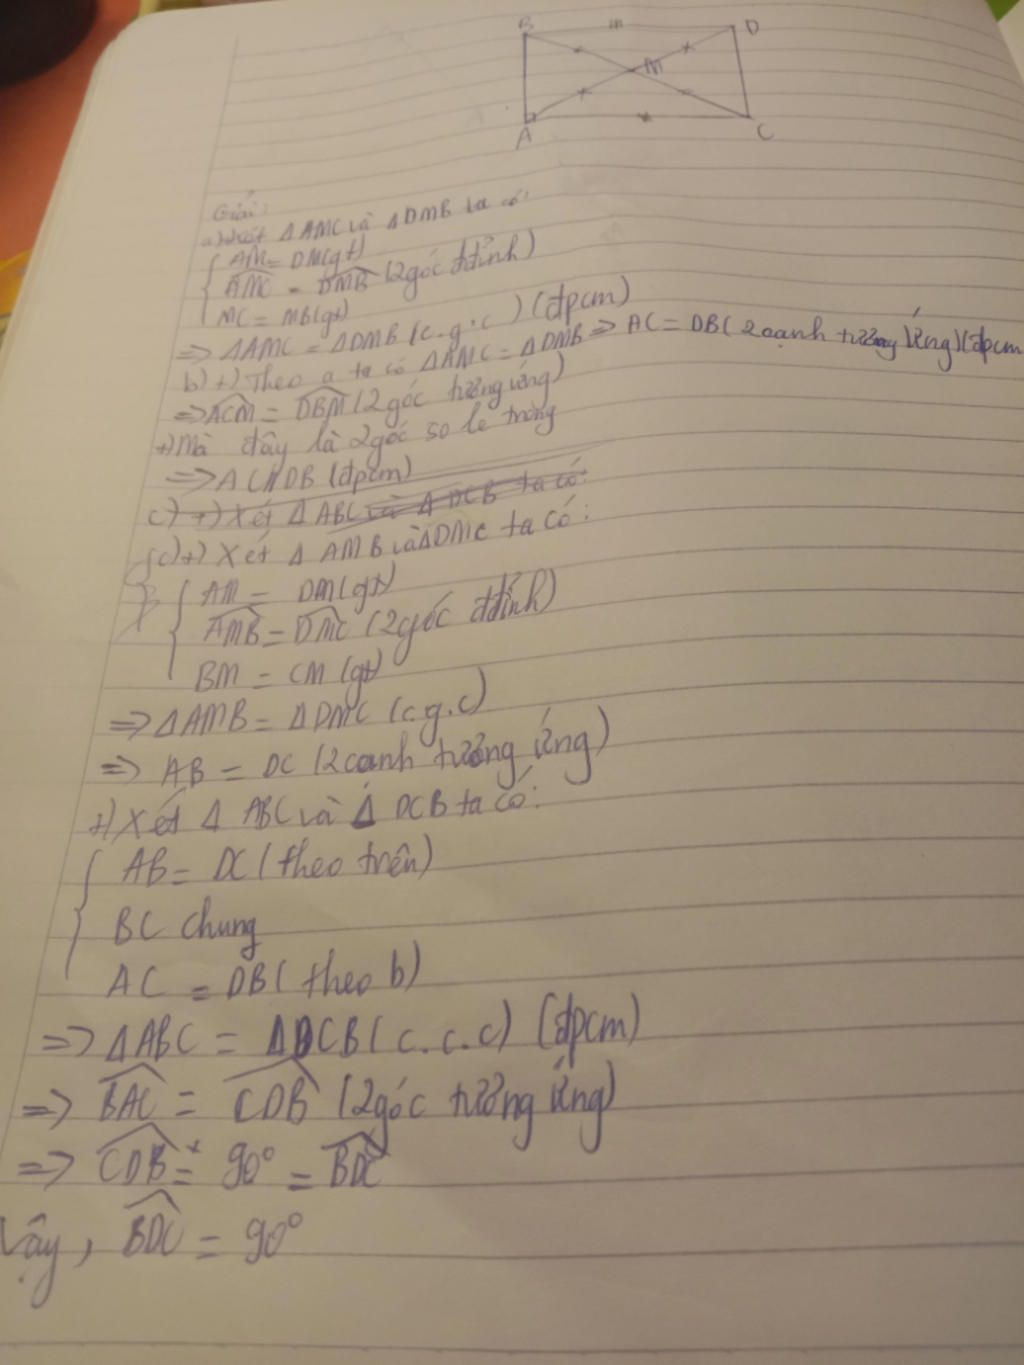 B
D
M
A
C
Giải:
a) +) Xét Δ AMC và Δ DMB ta có:
AM = DM (gt)
AMC = DMB (2góc đđỉnh)
MC = MB (gt)
=> ΔAMC = ΔDMB (c.g.c) (đpcm)
b) +) Theo a ta có ΔAMC = ΔDMB => AC = DB (2cạnh tương ứng) (đpcm
=> ACM = DBM (2góc tương ứng)
+) Mà đây là 2góc so le trong
=> AC // DB (đpcm)
c) +) Xét Δ ABC và Δ DCB ta có:
c) +) Xét Δ AMB và Δ DMC ta có:
AM = DM (gt)
AMB = DMC (2góc đđỉnh)
BM = CM (gt)
=> ΔAMB = ΔDMC (c.g.c)
=> AB = DC (2cạnh tương ứng)
+) Xét Δ ABC và Δ DCB ta có:
AB = DC (theo trên)
BC chung
AC = DB (theo b)
=> ΔABC = ΔDCB (c.c.c) (đpcm)
=> BAC = CDB (2góc tương ứng)
=> CDB = 90° = BDC
Vậy, BDC = 90°